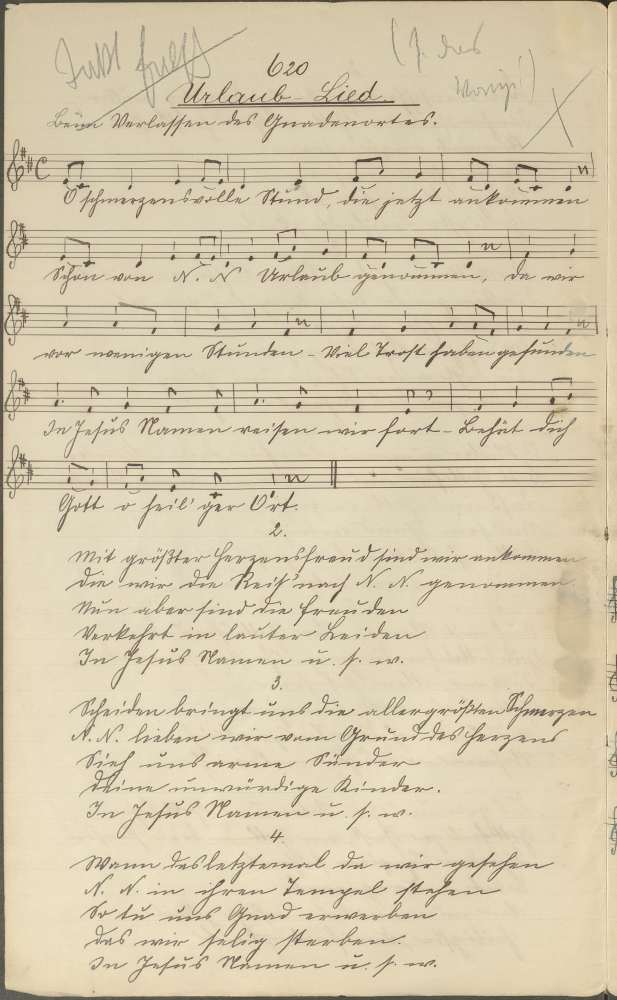 620
Urlaub-Lied.
Beim Verlassen des Gnadenortes.
O schmerzensvolle Stund, die jetzt ankommen
Schon von N. N Urlaub genommen, da wir
vor wenigen Stunden - Viel Trost haben gefunden
In Jesus Namen reisen wir fort - Behüt dich
Gott o heil'ger Ort.
2.
Mit größter Herzensfreud sind wir ankommen
Die wir die Reis' nach N. N. genommen
Nun aber sind die Freuden
Verkehrt in lauter Leiden
In Jesus Namen u. s. w.
3.
Scheiden bringt uns die allergrößten Schmerzen
N. N. lieben wir vom Grund des Herzens
Sieh uns arme Sünder
Deine unwürdige Kinder.
In Jesus Namen u. s. w.
4
Wann das letztemal da wir gesehen
N. N. in ihren Tempel stehen
So tu uns Gnad erwerben
Das wir selig sterben.
In Jesus Namen u. s. w.